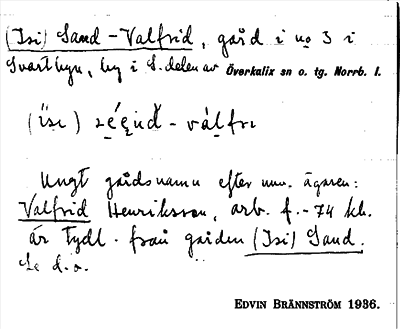 (Isi) Sand-Valfrid, gård i no 3 i
Svartbyn, by i S. delen av Överkalix sn o. tg. Norrb. l.
Ungt gårdsnamn efter nuv. ägaren:
Valfrid Henriksson, arb. f. -74 kh.
är tydl. från gården (Isi) Sand.
Se d.o.
EDVIN BRÄNNSTRÖM 1936.